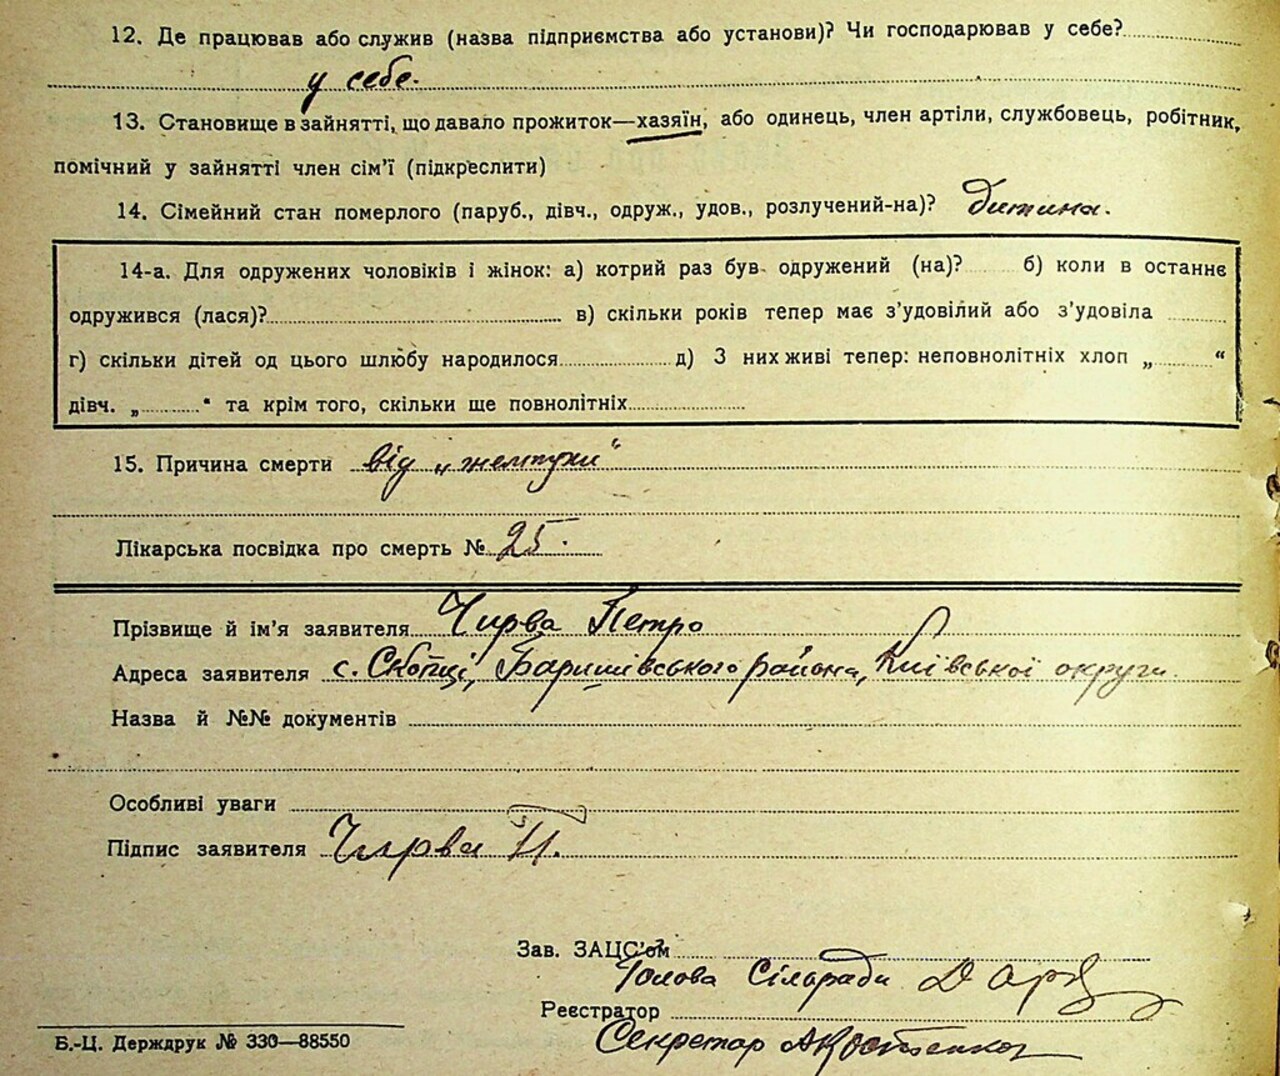 12. Де працював або служив (назва підприємства або установи)? Чи господарював у себе?
у себе.
13. Становище в зайнятті, що давало прожиток—хазяїн, або одинець, член артіли, службовець, робітник,
помічний у зайнятті член сім'ї (підкреслити)
14. Сімейний стан померлого (паруб., дівч., одруж., удов., розлучений-на)? Дитина.
14-а. Для одружених чоловіків і жінок: а) котрий раз був одружений (на)? б) коли в останнє
одружився (лася)? в) скільки років тепер має з'удовілий або з'удовіла
г) скільки дітей од цього шлюбу народилося д) З них живі тепер: неповнолітніх хлоп „ “
дівч. „ “ та крім того, скільки ще повнолітніх
15. Причина смерти від „жемтухи“
Лікарська посвідка про смерть № 25.
Прізвище й ім'я заявителя Чирва Петро
Адреса заявителя с. Скопці, Баришівського района, Київської округи.
Назва й №№ документів
Особливі уваги
Підпис заявителя Чирва П.
Зав. ЗАЦС'ом
Голова Сільради
Реєстратор
Секретар АКостенко
Б.-Ц. Держдрук № 330—88550